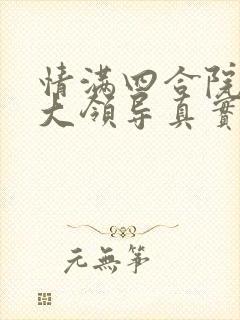 情满四合院
大领导真實
元無筝